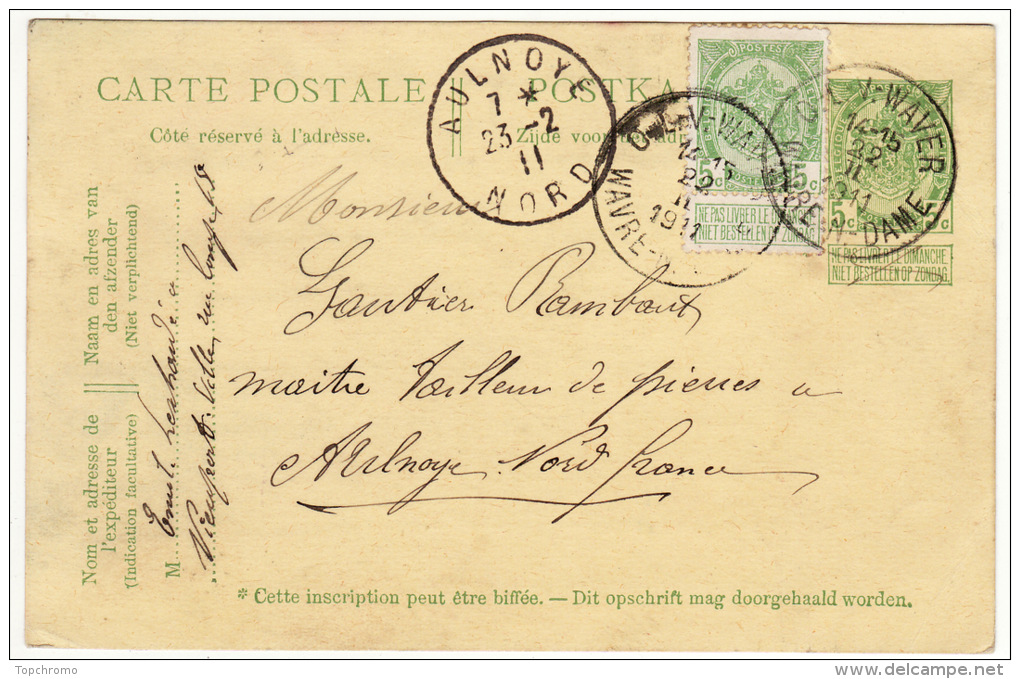 CARTE POSTALE POSTKA
Côté réservé à l'adresse. Zijde voor
AULNOYE
7 *
23-2
11
NORD
POSTES
5c 5c
NE PAS LIVRER LE DIMANCHE
NIET BESTELLEN OP ZONDAG
O-L-V-WAVER
14-15
22
II
1911
WAVRE-N
O-L-V-WAVER
14-15
22
II
1911
WAVRE-N-DAME
5c 5c
NE PAS LIVRER LE DIMANCHE
NIET BESTELLEN OP ZONDAG
Monsieur
Gautier Rambaut
maitre tailleur de pierres a
Aulnoye Nord france
Naam en adres van
den afzender
(Niet verplichtend)
Nom et adresse de
l'expéditeur
(Indication facultative)
M
* Cette inscription peut être biffée. — Dit opschrift mag doorgehaald worden.
Topchromo
www.delcampe.net